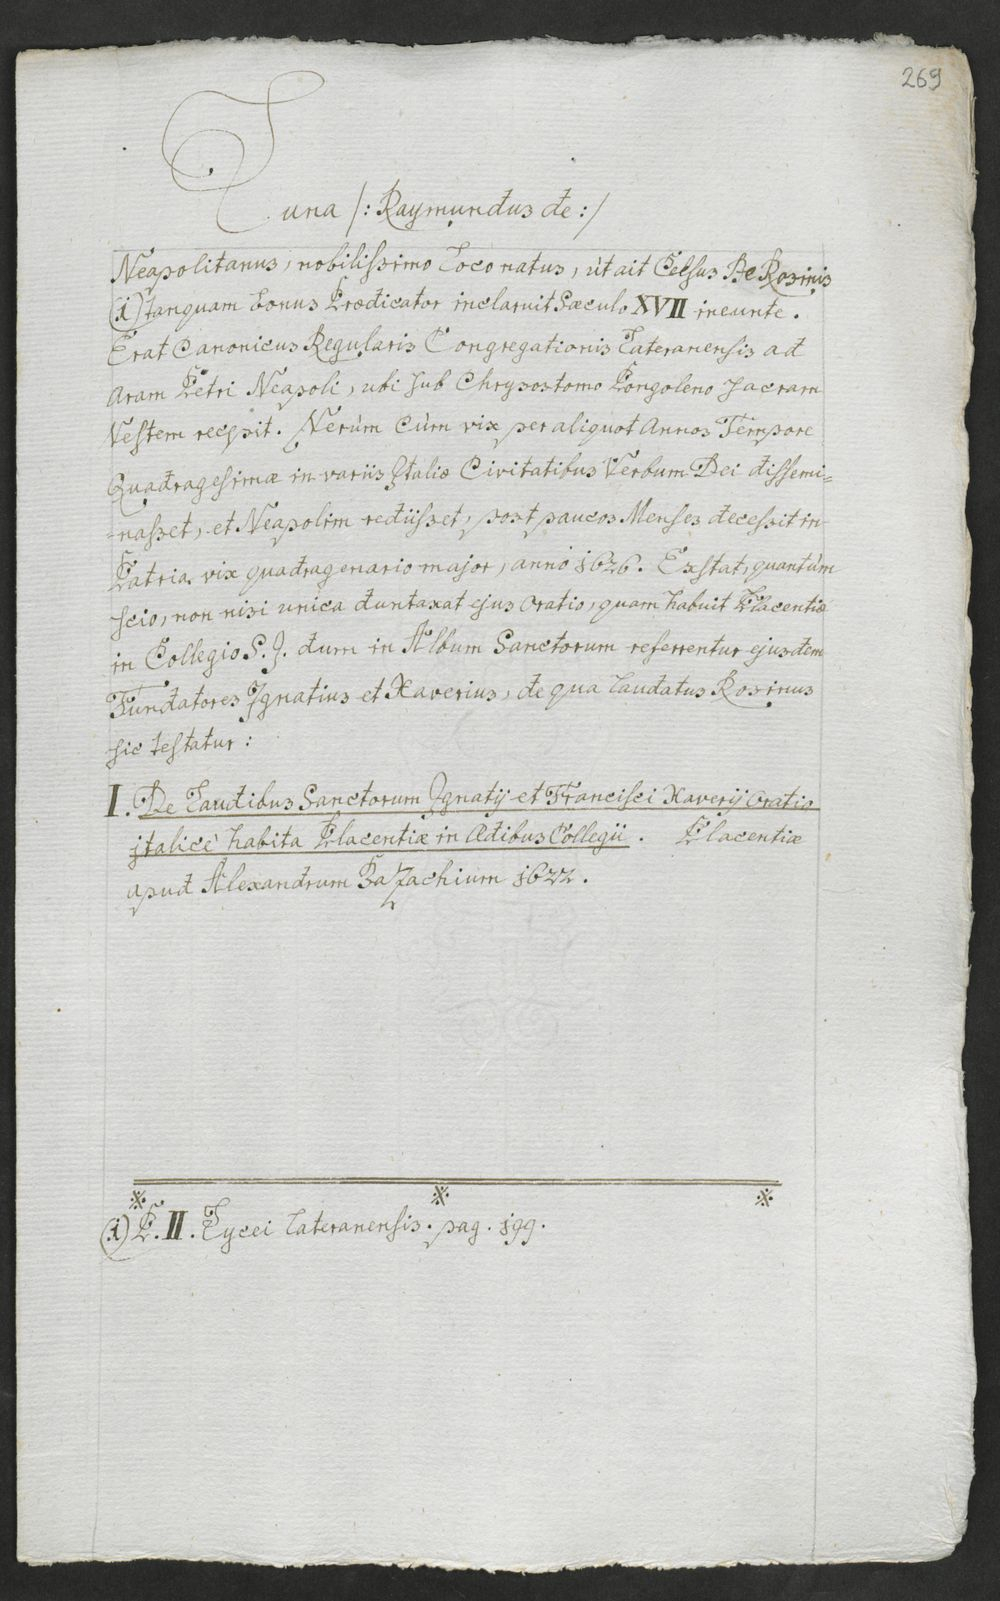 269
Luna /: Raymundus de :/
Neapolitanus, nobilissimo Loco natus, ùt ait Celsus De Rosinis
(1) tanquam bonus Prædicator inclaruit Sæculo XVII ineunte.
Erat Canonicus Regularis Congregationis Lateranensis ad
Aram Petri Neapoli, ubi sub Chrysostomo Longoleno sacram
Vestem recepit. Verùm Cùm vix per aliquot Annos Tempore
Quadragesimæ in variis Italiæ Civitatibus Verbum Dei dissemi=
=nasset, et Neapolim rediisset, post paucos Menses decessit in
Patria vix quadragenario major, anno 1626. Exstat, quantùm
scio, non nisi unica duntaxat ejus Oratio, quam habuit Placentiæ
in Collegio S. J. dum in Album Sanctorum referrentur ejusdem
Fundatores Ignatius et Xaverius, de qua laudatus Rosinus
sic testatur:
I. De Laudibus Sanctorum Ignatij et Francisci Xaverij Oratio
italicè habita Placentiæ in Ædibus Collegii. Placentiæ
apud Alexandrum Bazachium 1622.
(1) P. II. Lycei Lateranensis. pag. 199.